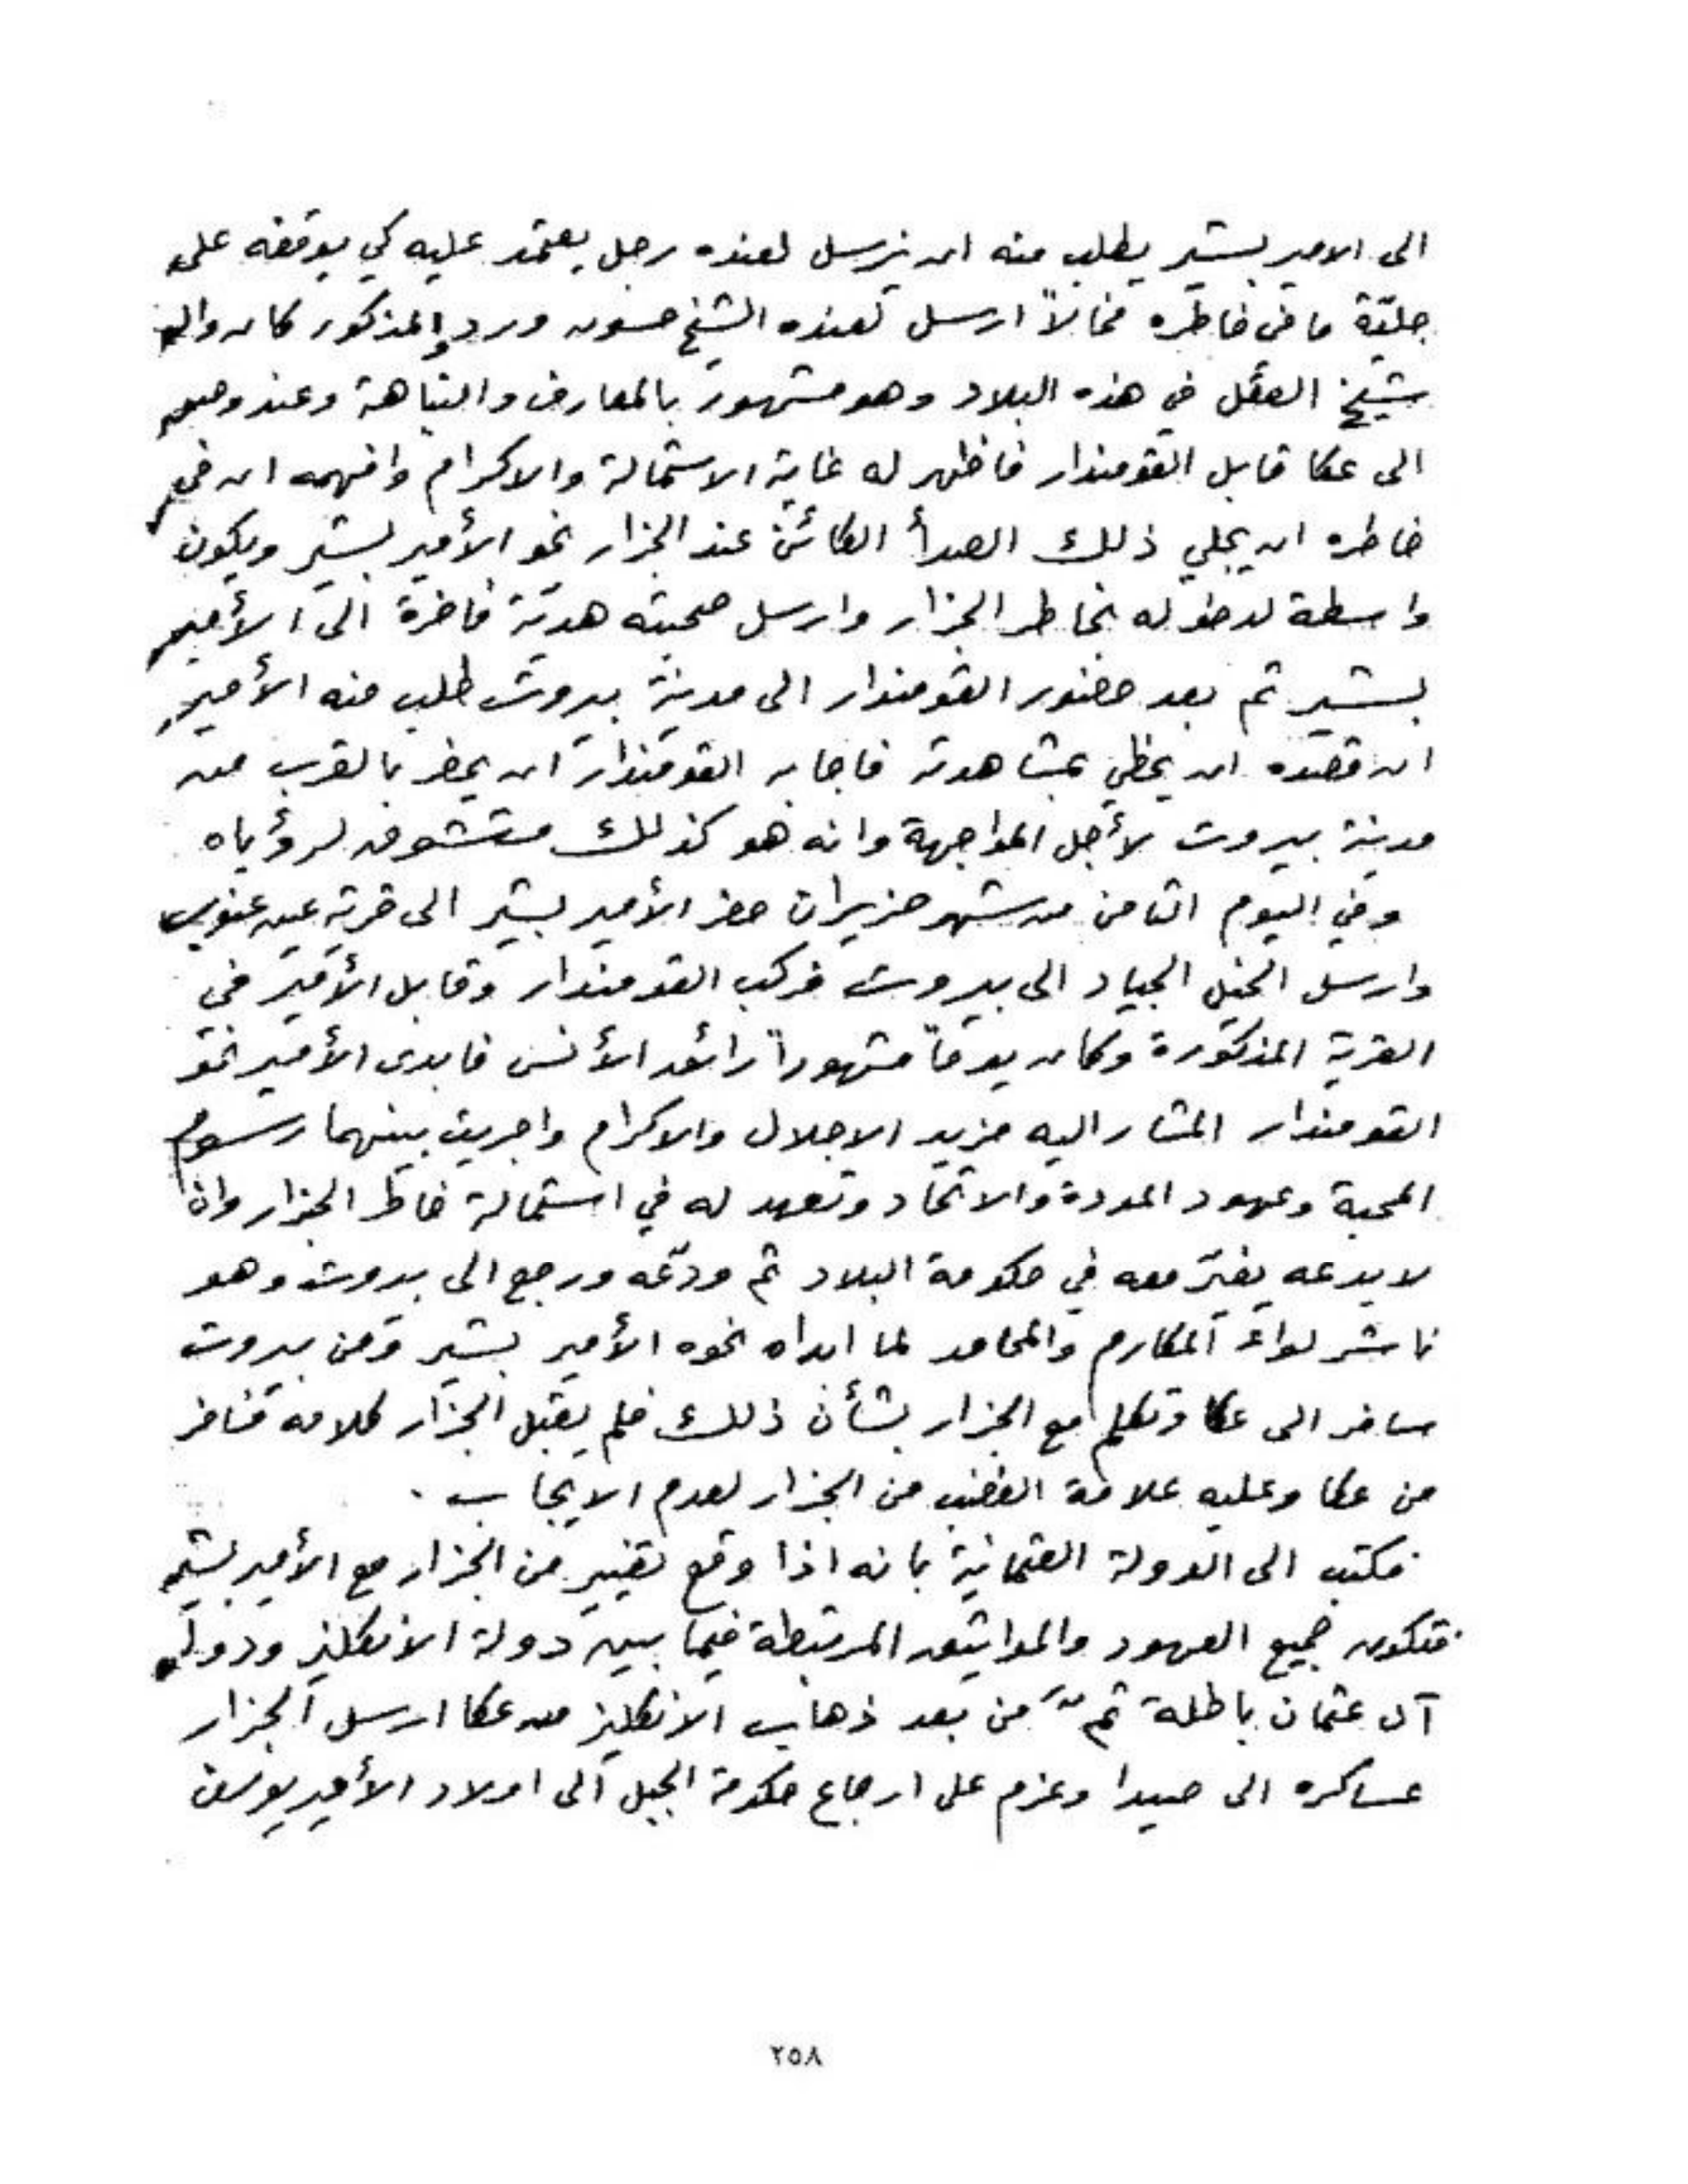 الى الامير بشير يطلب منه ان يرسل لعنده رجل يعتمد عليه كي يوقفه على
جليّة ما في خاطره فحالاً ارسل لعنده الشيخ حسون ورد والمذكور كان والده
شيخ العقل في هذه البلاد وهو مشهور بالمعارف والنباهة وعند وصوله
الى عكا قابل القومندار فاظهر له غاية الاستمالة والاكرام وافهمه ان في
خاطره ان يجلي ذلك الصدأ الكائن عند الجزار نحو الأمير بشير ويكون
واسطة لدخوله بخاطر الجزار وارسل صحبته هديّة فاخرة الى الأمير
بشير ثم بعد حضور القومندار الى مدينة بيروت طلب منه الأمير
ان قصده ان يحظي بمشاهدته فاجابه القومندار ان يحضر بالقرب من
مدينة بيروت لأجل المواجهة وانه هو كذلك متشوق لرؤياه
وفي اليوم الثامن من شهر حزيران حضر الأمير بشير الى قرية عين عنوب
وارسل الخيل الجياد الى بيروت فركب القومندار وقابل الأمير في
القرية المذكورة وكان يوماً مشهوراً رائد الأنس فابدى الأمير نحو
القومندار المشار اليه مزيد الاجلال والاكرام واجريت بينهما رسوم
المحبة وعهود المودة والاتحاد وتعهد له في استمالة خاطر الجزار وان
لا يدعه يغيّر معه في حكومة البلاد ثم ودّعه ورجع الى بيروت وهو
ناشر لواء المكارم والمحامد لما ابداه نحوه الأمير بشير ومن بيروت
سافر الى عكا وتكلم مع الجزار بشأن ذلك فلم يقبل الجزار كلامه فسافر
من عكا وعليه علامة الغضب من الجزار لعدم الايجاب .
فكتب الى الدولة العثمانية بانه اذا وقع تغيير من الجزار مع الأمير بشير
فتكون جميع العهود والمواثيق المرتبطة فيما بين دولة الانكليز ودولة
آل عثمان باطلة ثمّ من بعد ذهاب الانكليز من عكا ارسل الجزار
عساكره الى صيدا وعزم على ارجاع حكومة الجبل الى اولاد الأمير يوسف
٢٥٨